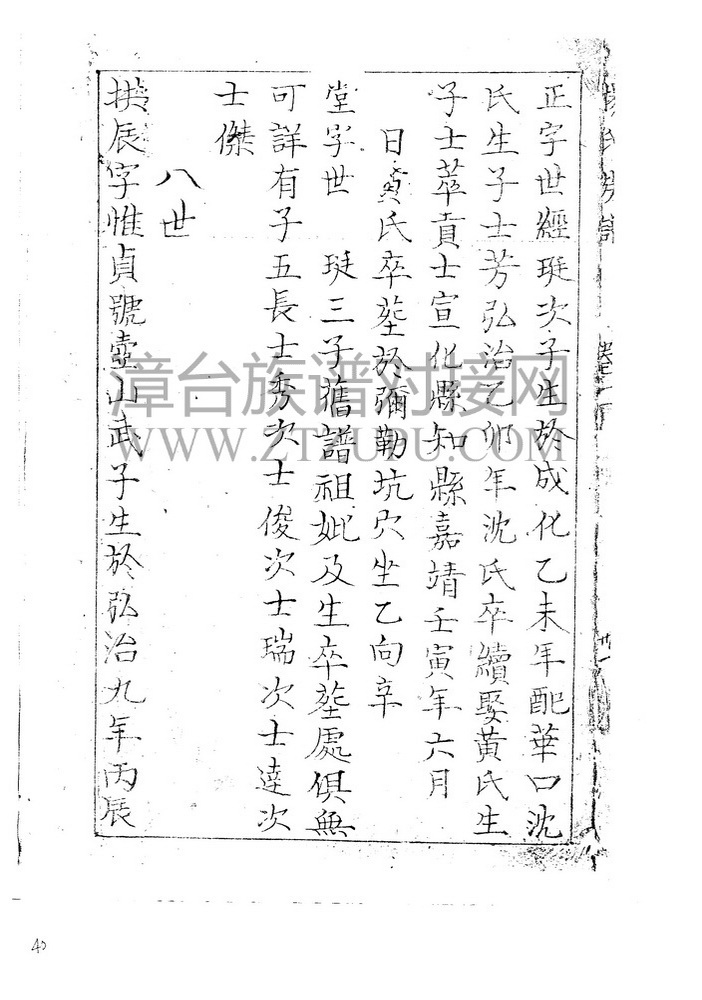 正字世經珽次子生於成化乙未年配華口沈
氏生子士芳弘治乙卯年沈氏卒續娶黃氏生
子士萃貢士宣化縣知縣嘉靖壬寅年六月
日黃氏卒塟於彌勒坑穴坐乙向辛
堂字世　珽三子舊譜祖妣及生卒塟處俱無
可詳有子五長士秀次士俊次士瑞次士達次
士傑
八世
拱辰字惟貞號壺山武子生於弘治九年丙辰
漳台族谱对接网
WWW.ZTZUPU.COM
40